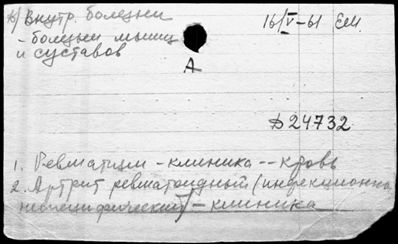 б) Внутр. болезни
16/V-61 Ем.
- болезни мышц
и суставов
А
Д 24732
1. Ревматизм - клиника -- кровь
2. Артрит ревматоидный (инфекционно
неспецифический) - клиника